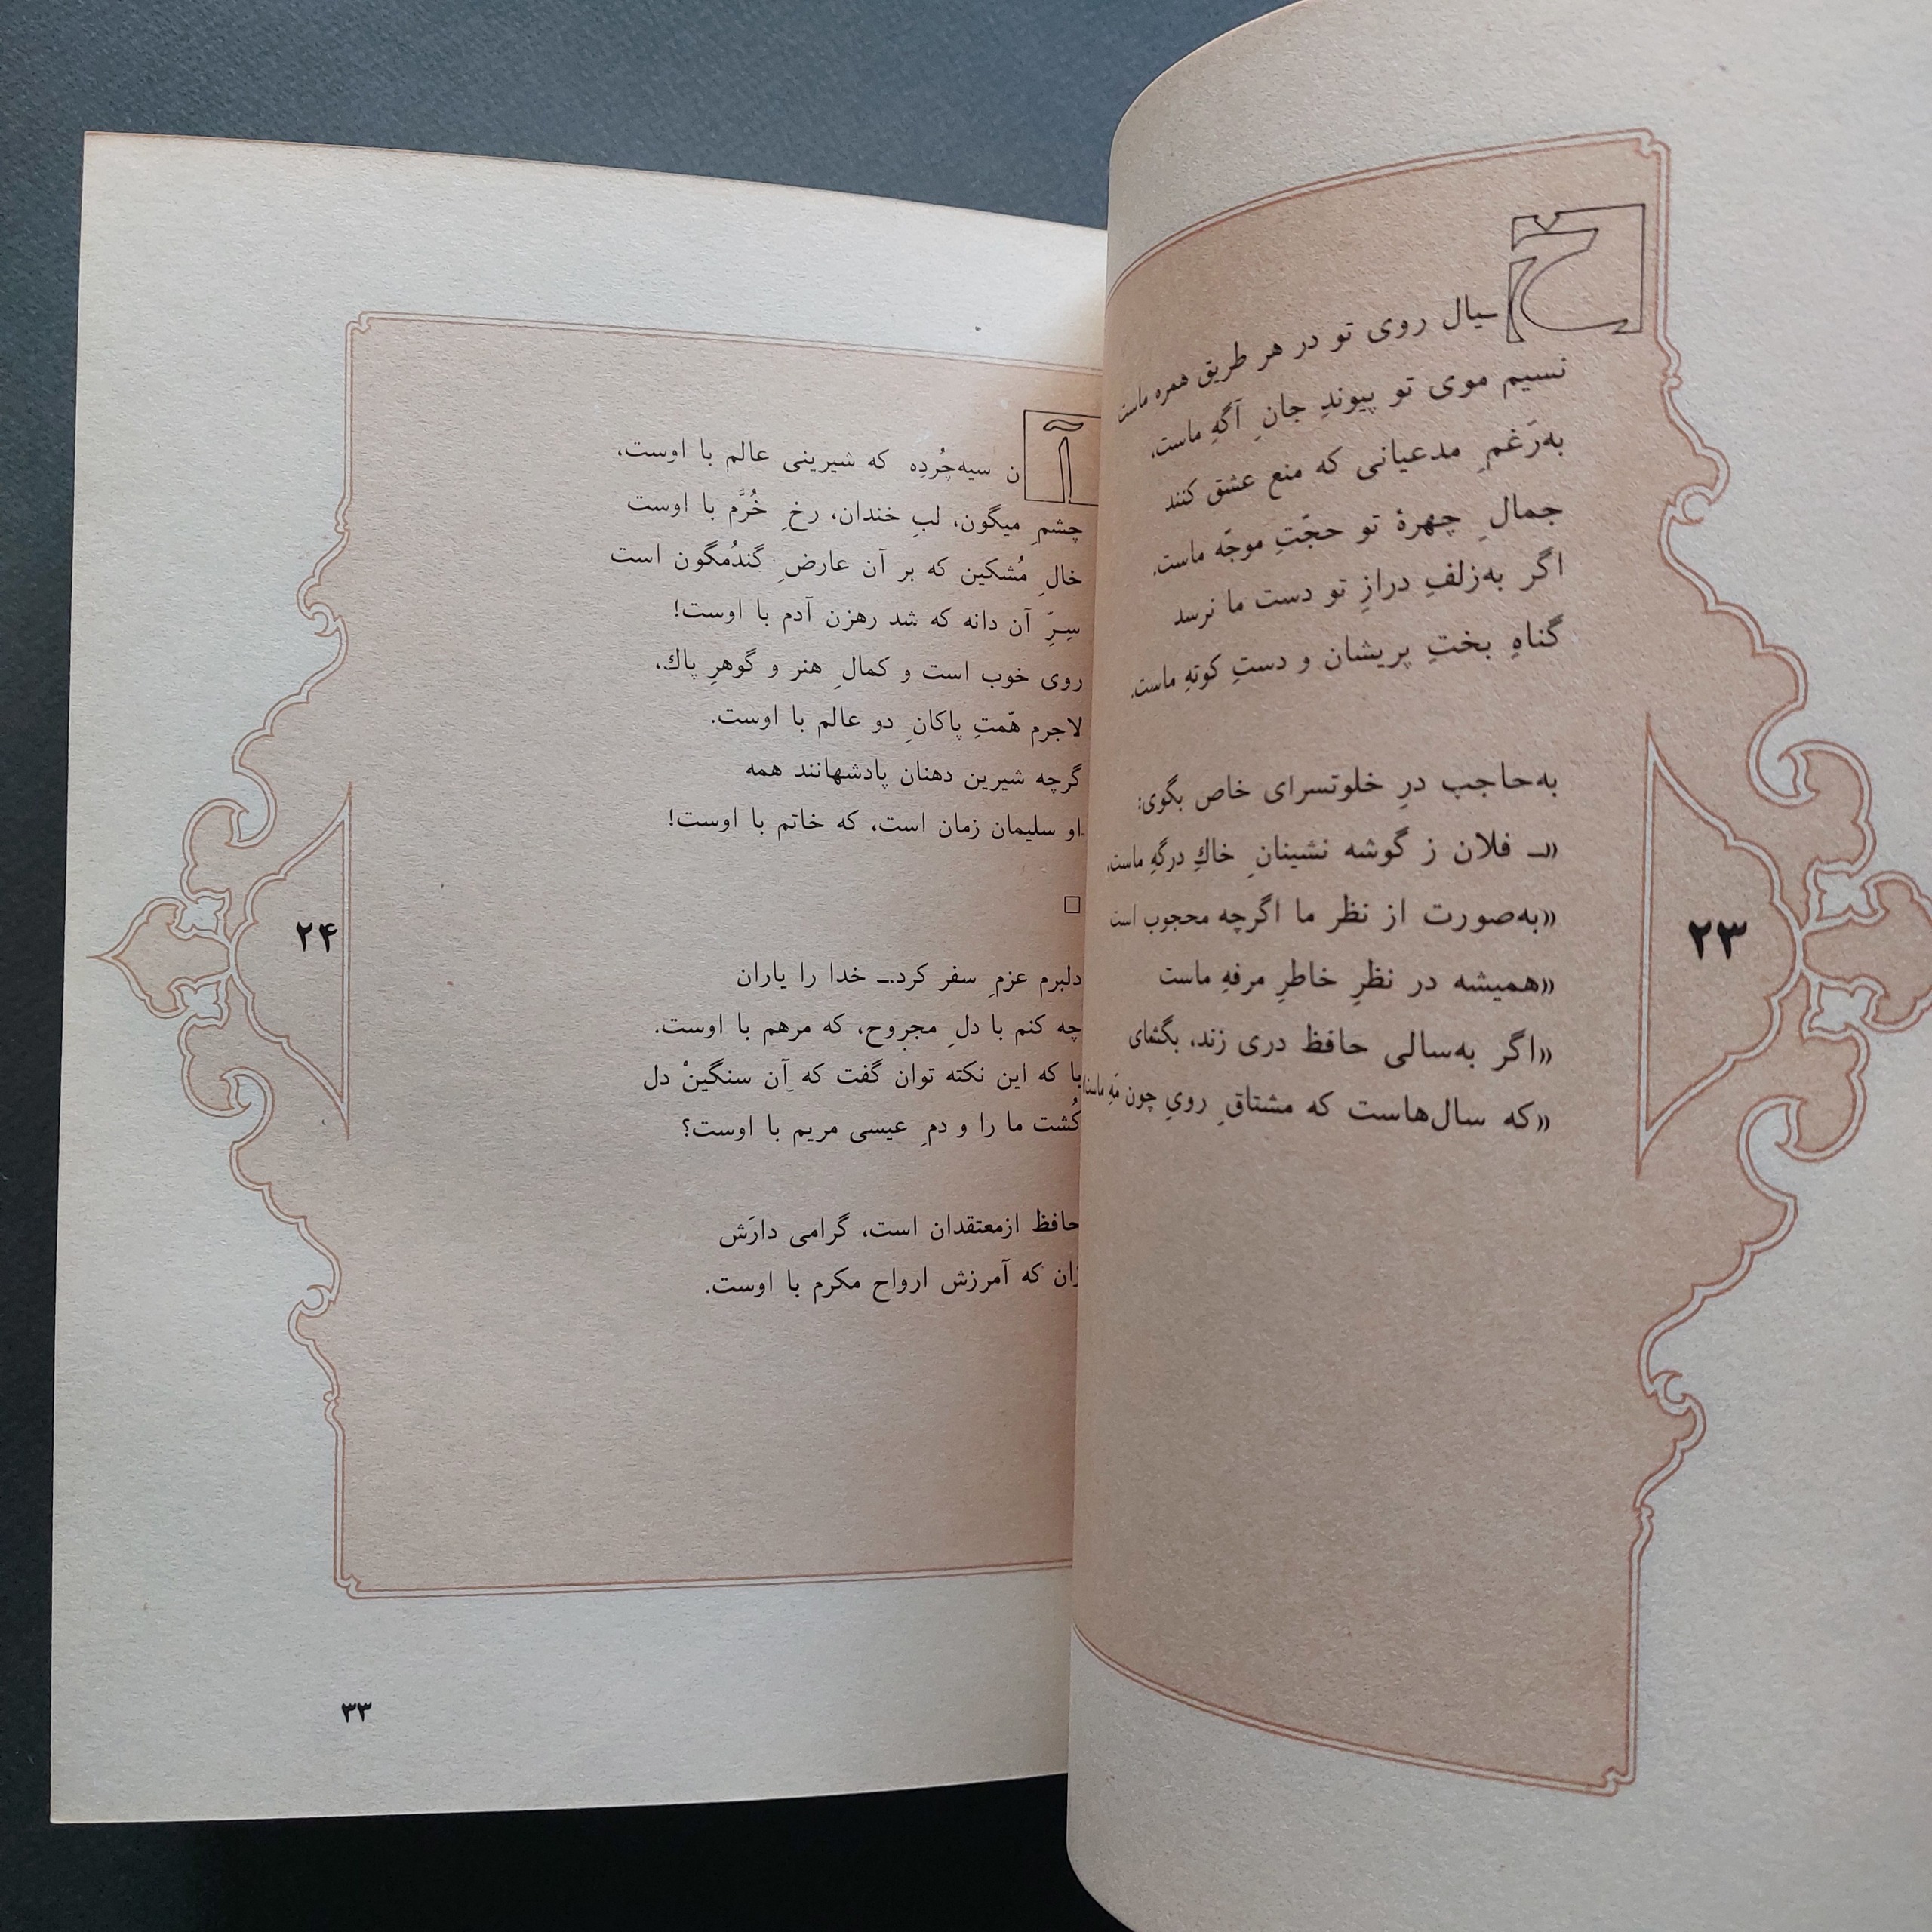 خیال روی تو در هر طریق همره ماست
نسیم موی تو پیوندِ جانِ آگهِ ماست،
به‌رَغمِ مدعیانی که منع عشق کنند
جمالِ چهرهٔ تو حجّتِ موجّه ماست.
اگر به‌زلفِ درازِ تو دست ما نرسد
گناهِ بختِ پریشان و دستِ کوتهِ ماست.
به‌حاجبِ درِ خلوتسرای خاص بگوی:
«ـ فلان ز گوشه نشینانِ خاكِ درگهِ ماست،
«به‌صورت از نظر ما اگرچه محجوب است
«همیشه در نظرِ خاطرِ مرفهِ ماست
«اگر به‌سالی حافظ دری زند، بگشای
«که سال‌هاست که مشتاقِ رویِ چون مَهِ ماست
۲۳
آن سیه‌چُردِه که شیرینی عالم با اوست،
چشمِ میگون، لبِ خندان، رخِ خُرَّم با اوست
خالِ مُشکین که بر آن عارضِ گندُمگون است
سِرِّ آن دانه که شد رهزن آدم با اوست!
روی خوب است و کمالِ هنر و گوهرِ پاك،
لاجرم هّمتِ پاکانِ دو عالم با اوست.
گرچه شیرین دهنان پادشهانند همه
او سلیمان زمان است، که خاتم با اوست!
□
دلبرم عزمِ سفر کرد.ـ خدا را یاران
چه کنم با دلِ مجروح، که مرهم با اوست.
با که این نکته توان گفت که آن سنگینْ دل
کُشت ما را و دمِ عیسی مریم با اوست؟
حافظ ازمعتقدان است، گرامی دارَش
زان که آمرزش ارواح مکرم با اوست.
۲۴
۳۳